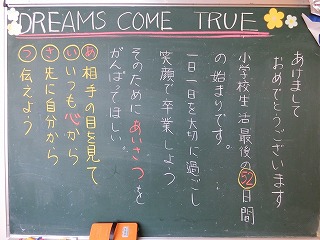 DREAMS COME TRUE
あけまして
おめでとうございます
小学校生活最後の52日間
の始まりです。
一日一日を大切に過ごし
笑顔で卒業しよう
そのためにあいさつを
がんばってほしい。
あ相手の目を見て
いいつも心から
さ先に自分から
つ伝えよう